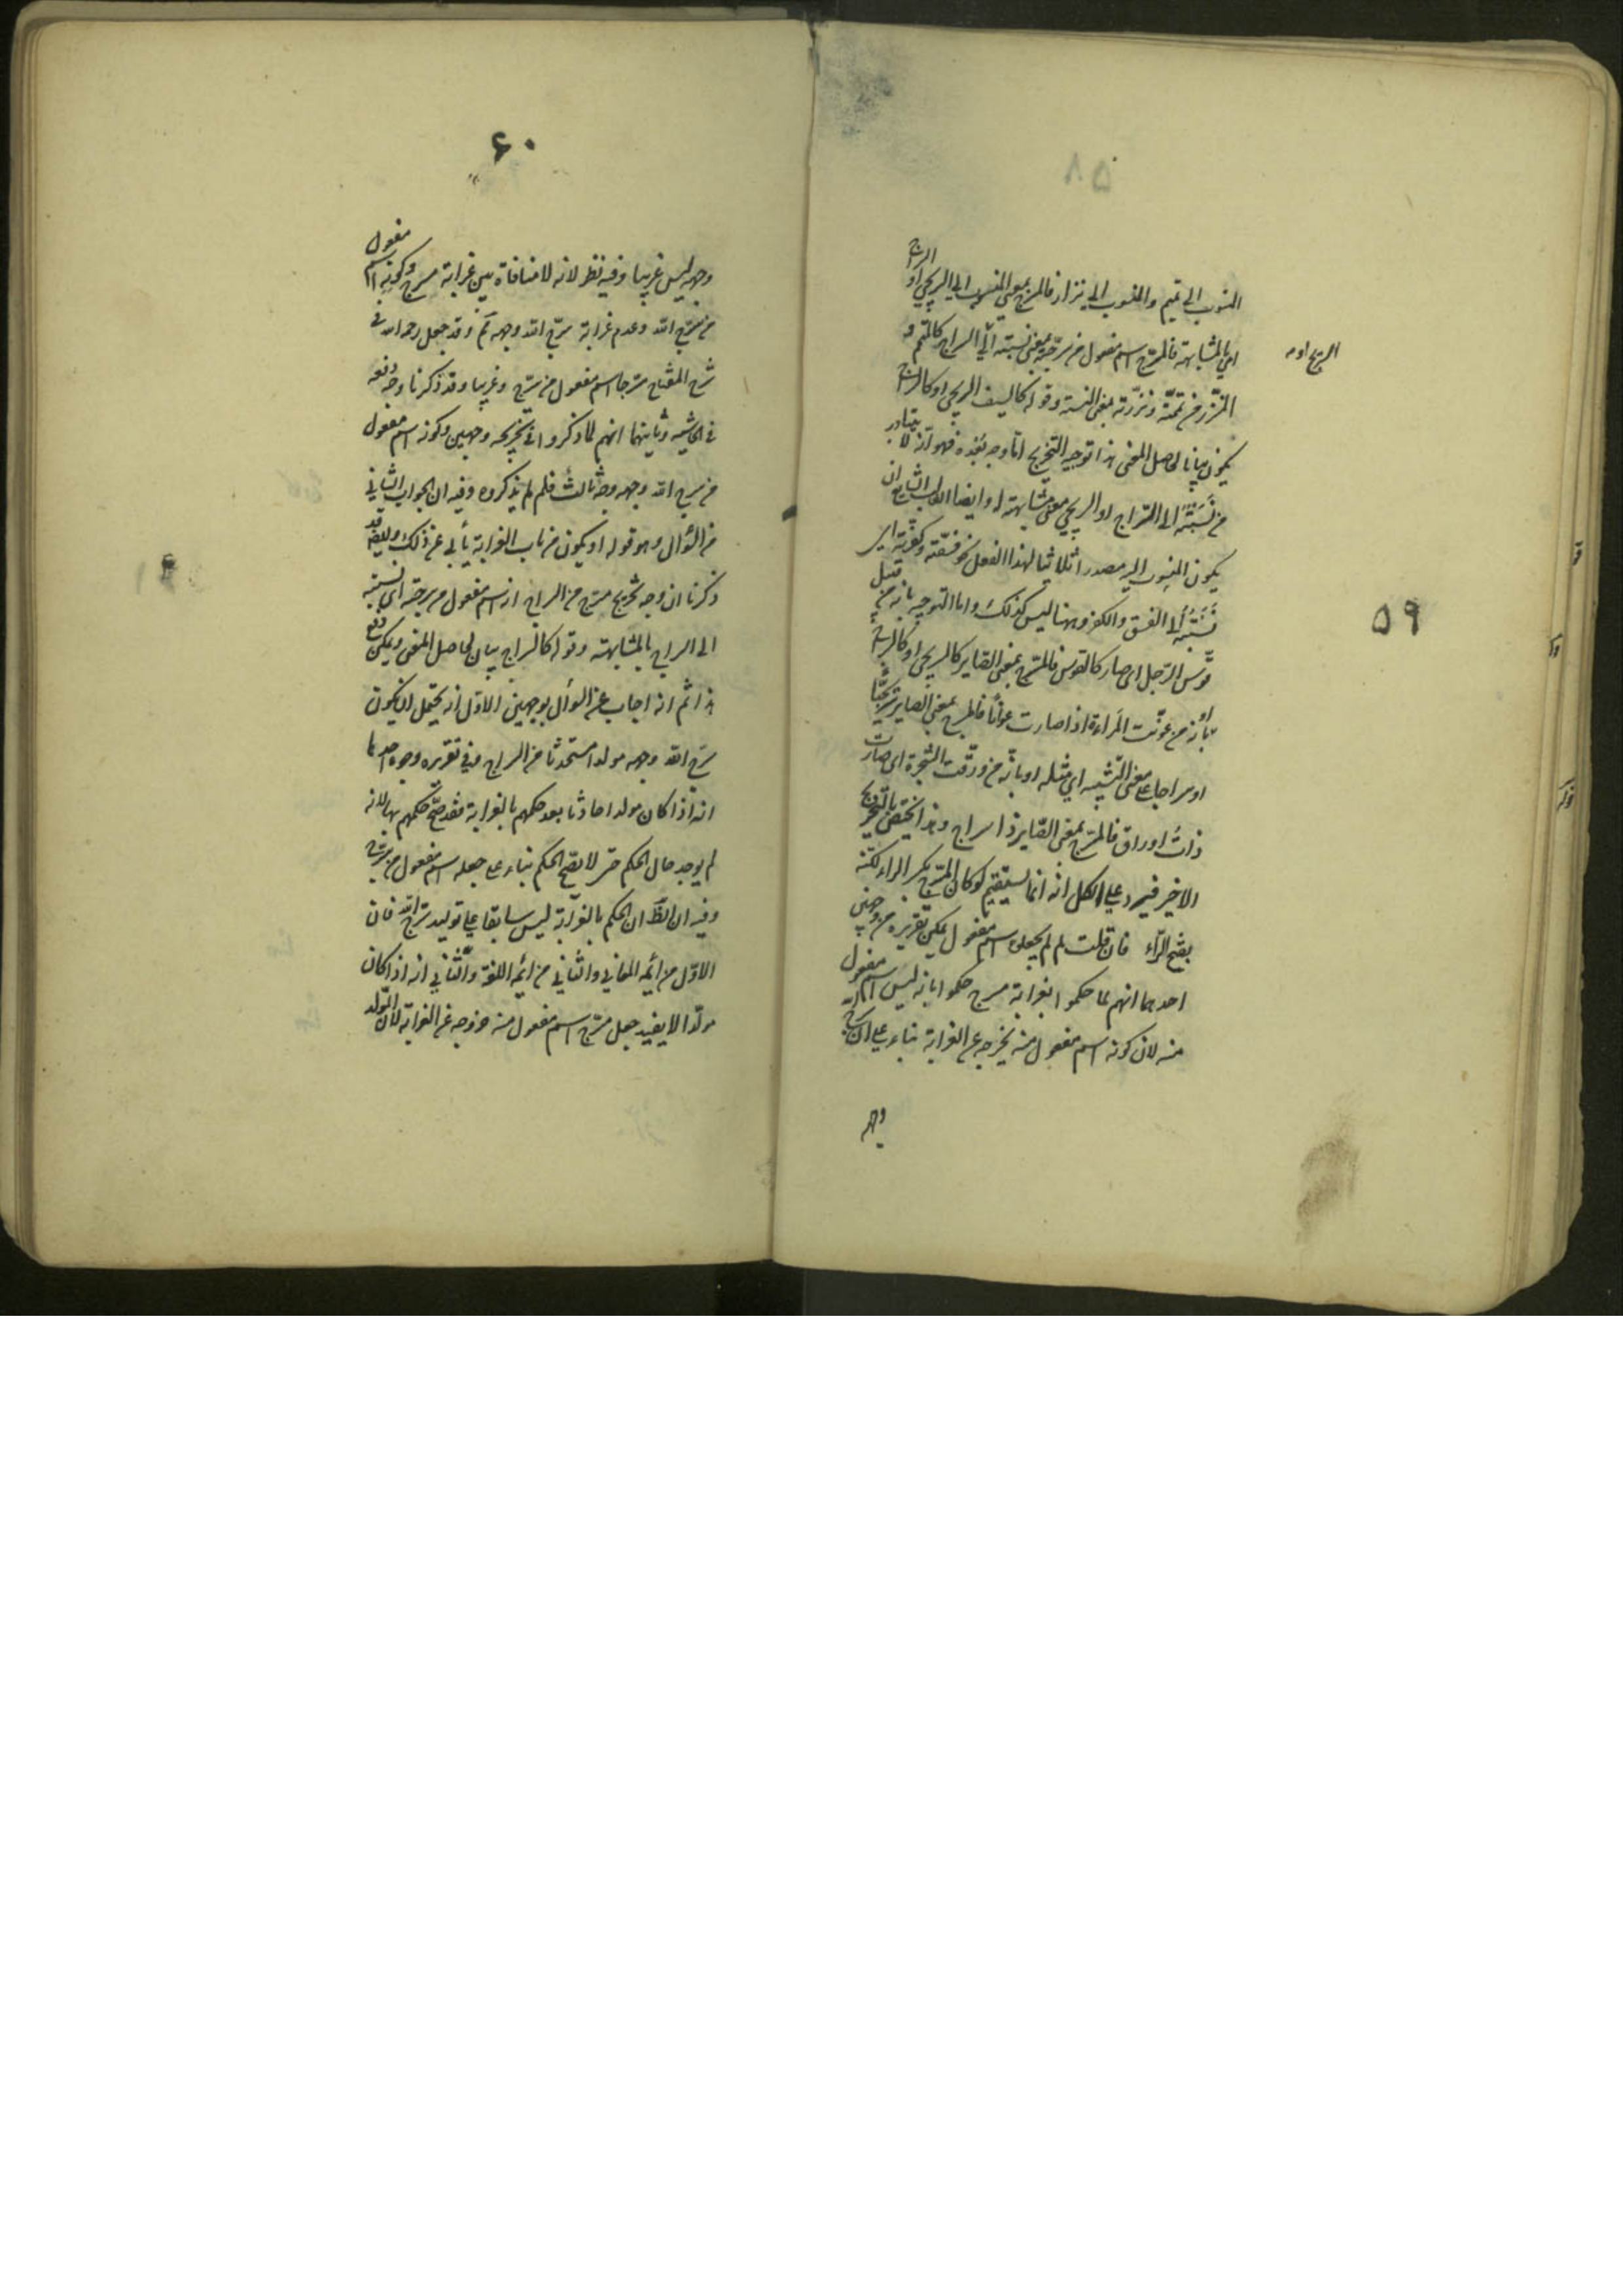 ۵۹
المنسوب الى تميم والمنسوب الى نزار فالمسرج بمعنى المنسوب الى السريجى او السراج
اى بالمشابهة فالمسرج اسم مفعول من سرّجته بمعنى نسبته الى السراج كالمتمم و
المنزّر من تمّمته ونزّرته بمعنى النسبة وقوله كالسيف السريجى او كالسراج
يكون بيانا لحاصل المعنى هذا توجيه التخريج امّا وجه بعده فهو انه لا يتبادر
من نَسَبْتُه الى السّراج او السريجى معنى مشابهته له وايضا الباب الشايع ان
يكون المنسوب اليه مصدرا ثلاثيا لهذا الفعل نحو فسّقته وكفّرته اى
نَسَبْتُه الى الفسق والكفر وههنا ليس كذلك واما التوجيه بانه من قبيل
قوّس الرّجل اى صار كالقوس فالمسرّج بمعنى الصاير كالسريجى او كالسراج
او بانه من عوّنت المراءة اذا صارت عوانًا فالمسرج بمعنى الصاير سريجيًّا
او سراجا على معنى التشبيه اى مثله او بانّه من ورّقت الشجرة اى صارت
ذاتُ اوراق فالمسرّج بمعنى الصّاير ذا سراج وهذا يختص بالتخريج
الاخير فيرد على الكل انه انما يستقيم لو كان المسرّج بكسر الراء لكنّه
بفتح الرّاء فان قلت لم لم يجعلوه اسم مفعول يمكن تقريره من وجهين
احدهما انهم لما حكموا بغرابة مسرج حكموا بانه ليس اسم مفعول
منه لان كونه اسم مفعول منه يخرجه عن الغرابة بناء على ان سرّج اللّه
وجهه
السريج او
۶۰
وجهه ليس غريبا وفيه نظر لانه لا منافاة بين غرابة مسرج وكونه اسم مفعول
من سرّج اللّه وعدم غرابة سرّج اللّه وجهه ثم وقد جعل رحمه اللّه فى
شرح المفتاح مسرّجا اسم مفعول من سرّج وغريبا وقد ذكرنا وجه دفعه
فى الحاشية وثانيهما انهم لما ذكروا فى تخريجه وجهين وكونه اسم مفعول
من سرج اللّه وجهه وجه ثالث فلم لم يذكروه وفيه ان الجواب الثانى
من السؤال وهو قوله او يكون من باب الغرابة يأبى عن ذلك وايضا قد
ذكرنا ان وجه تخريج مسرّج من السراج انه اسم مفعول من سرجته اى نسبته
الى السراج بالمشابهته وقوله كالسراج بيان لحاصل المعنى ويمكن دفع
هذا ثم انه اجاب عن السؤال بوجهين الاوّل انه يحتمل ان يكون
سرّج اللّه وجهه مولدا مستحدثا من السراج وفى تقريره وجوه احدها
انه اذا كان مولدا حادثا بعد حكمهم بالغرابة فقد صحّ حكمهم بها لانه
لم يوجد حال الحكم حتى لا يصّح الحكم بناء على جعله اسم مفعول من سرّج
وفيه ان الظّ ان الحكم بالغرابة ليس سابقا على توليد سرّج اللّه فان
الاوّل من ائمه المعانى والثانى من ائمّه اللغة والثّانى انه اذا كان
مولّدا لا يفيد جعل مسرّج اسم مفعول منه خروجه عن الغرابة لان المولد